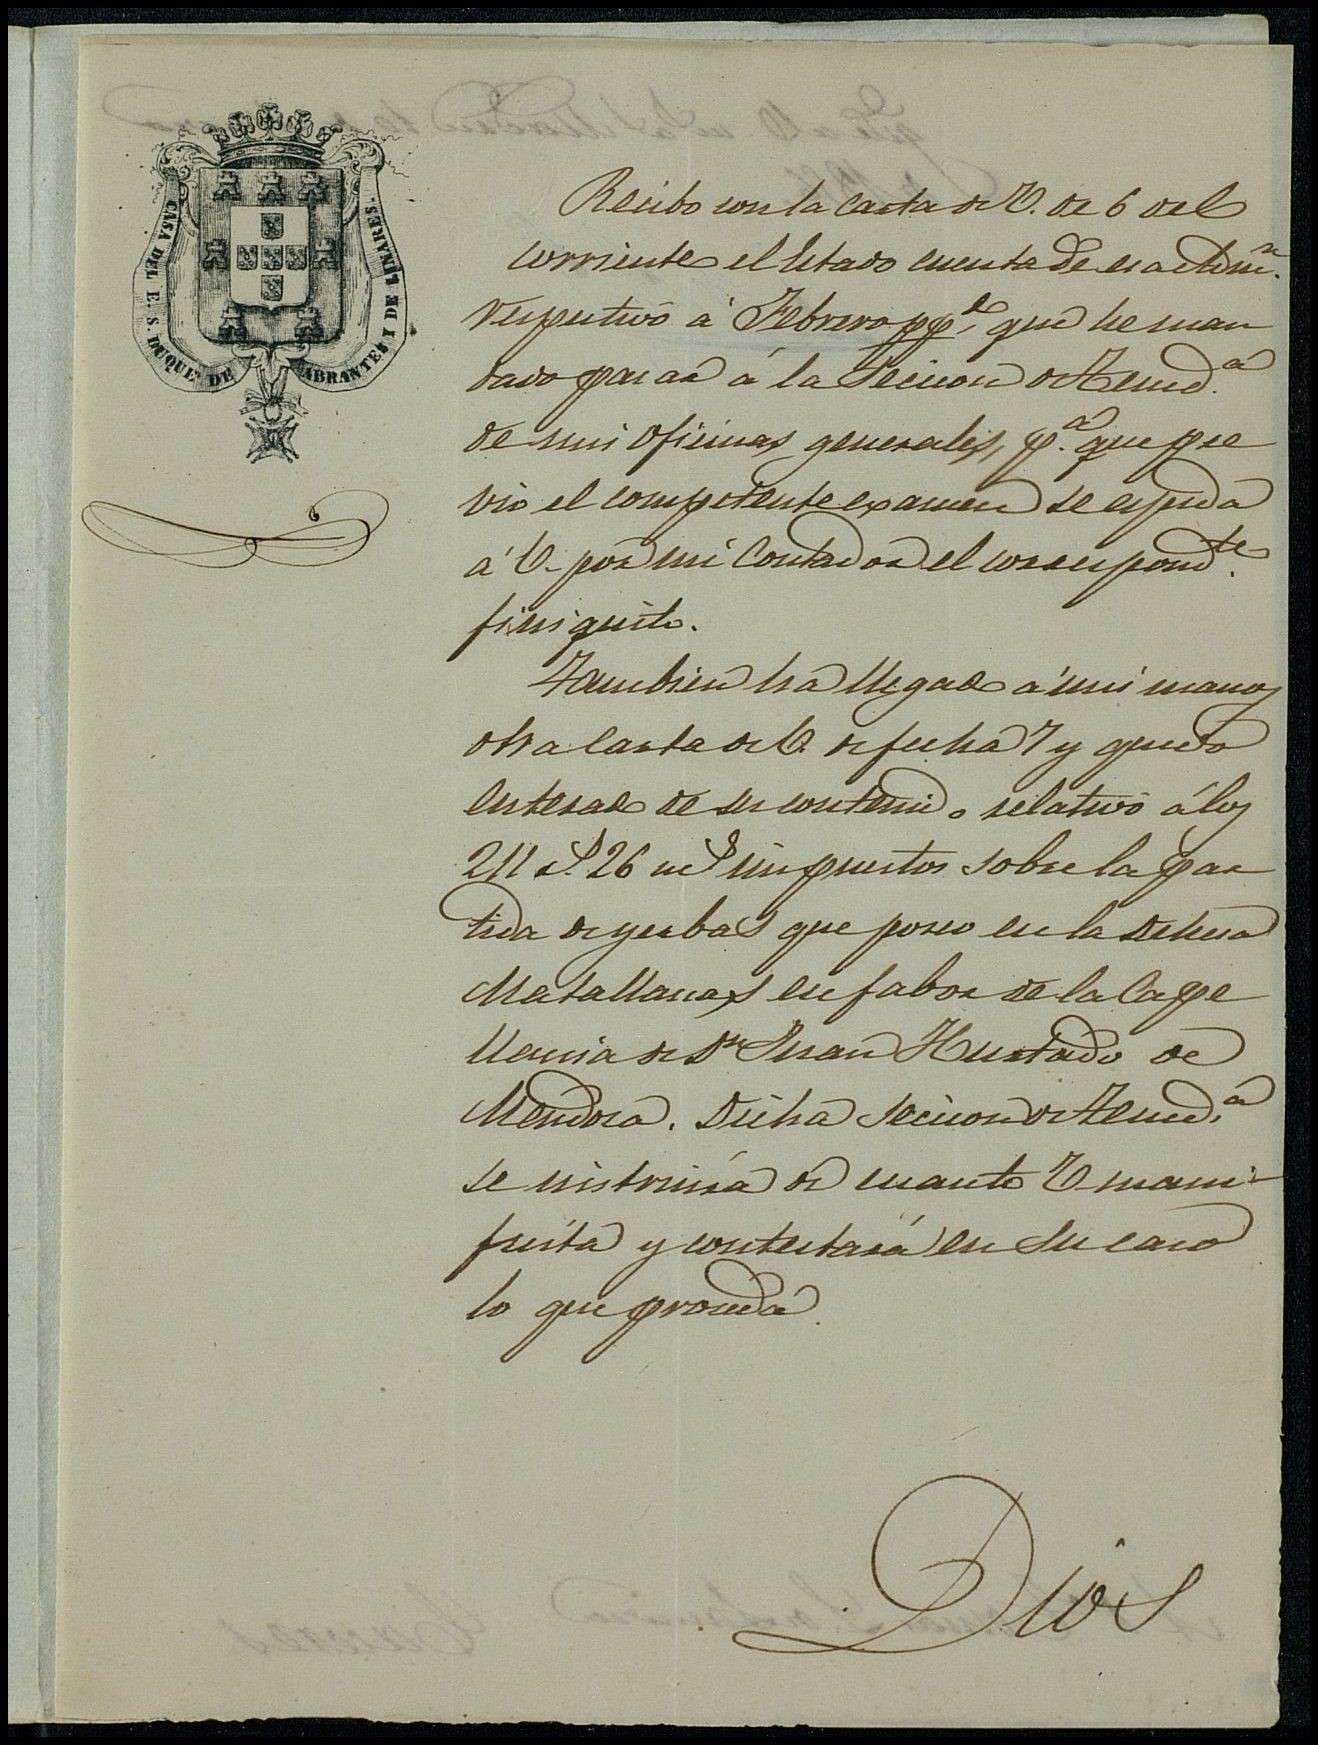 CASA DEL E. S. DUQUE DE ABRANTES I DE LINARES.
Recibo con la Carta de V. de 6 del
corriente el Estado cuenta de esa Adm.on
respectivo á Febrero pp.do, que he man
dado pasar á la Seccion de Tened.a
de mis oficinas generales, p.a que pre
vio el competente examen se espida
á V. por mi Contador el correspond.te
finiquito.
Tambien ha llegado á mis manos
otra Carta de V. de fecha 7 y quedo
enterado de su contenido relativo á los
211 rs. 26 ms. impuestos sobre la par
tida de yerbas que poseo en la dehesa
Matallanas en fabor de la Cape
llania de Dn Juan Hurtado de
Mendoza. Dicha Seccion de Tened.a
se instruirá de cuanto V. mani
fiesta y contestará en su caso
lo que proceda.
Dios